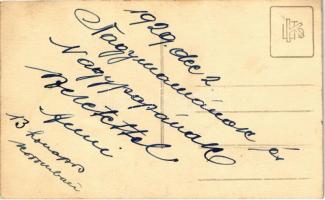 1929. dec 2.
Nagymamának és
Nagypapának
Szeretettel
Anni
13 hónapos